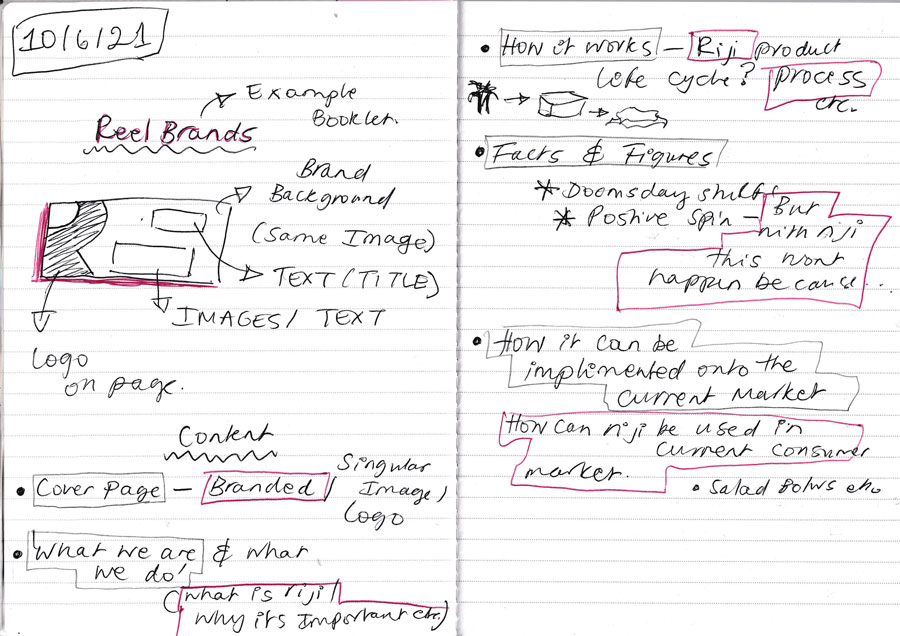 10/6/21
Example
Booklet.
Reel Brands
Brand
Background
(Same Image)
TEXT (TITLE)
IMAGES / TEXT
Logo
on page.
Content
• Cover Page – Branded /
Singular
Image /
Logo
• What we are & what
we do!
(what is riji /
why its Important etc.)
• How it works – Riji product
Life cycle? process
etc.
• Facts & Figures
* Doomsday
* Postive Spin – But
with riji
this wont
happen because...
• How it can be
implimented onto the
current market
How can riji be used in
current consumer
market.
• Salad Bolws etc.